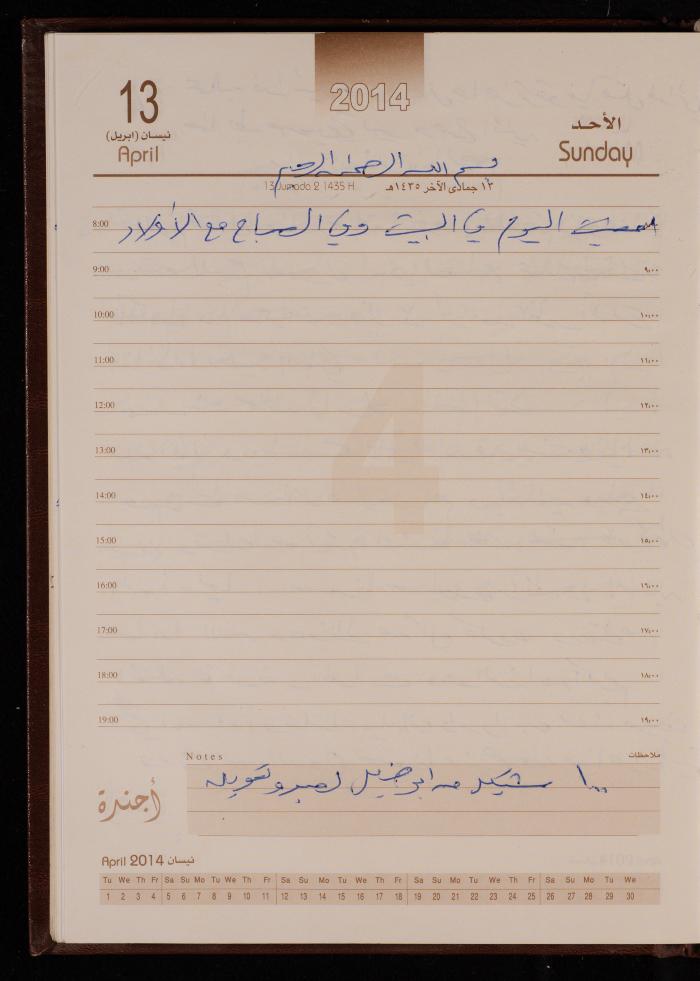 13
2014
الأحد
نيسان (ابريل)
April
Sunday
بسم الله الرحمن الرحيم
13 Jumada 2 1435 H.
١٣ جمادى الآخر ١٤٣٥هـ
8:00 أمضيت اليوم في البيت وفي الصباح مع الأولاد
9:00 ٩:٠٠
10:00 ١٠:٠٠
11:00 ١١:٠٠
12:00 ١٢:٠٠
13:00 ١٣:٠٠
4
14:00 ١٤:٠٠
15:00 ١٥:٠٠
16:00 ١٦:٠٠
17:00 ١٧:٠٠
18:00 ١٨:٠٠
19:00 ١٩:٠٠
Notes ملاحظات
١٠٠ شيكل من ابو
أجندة
April 2014 نيسان
Tu We Th Fr Sa Su Mo Tu We Th Fr Sa Su Mo Tu We Th Fr Sa Su Mo Tu We Th Fr Sa Su Mo Tu We
1 2 3 4 5 6 7 8 9 10 11 12 13 14 15 16 17 18 19 20 21 22 23 24 25 26 27 28 29 30